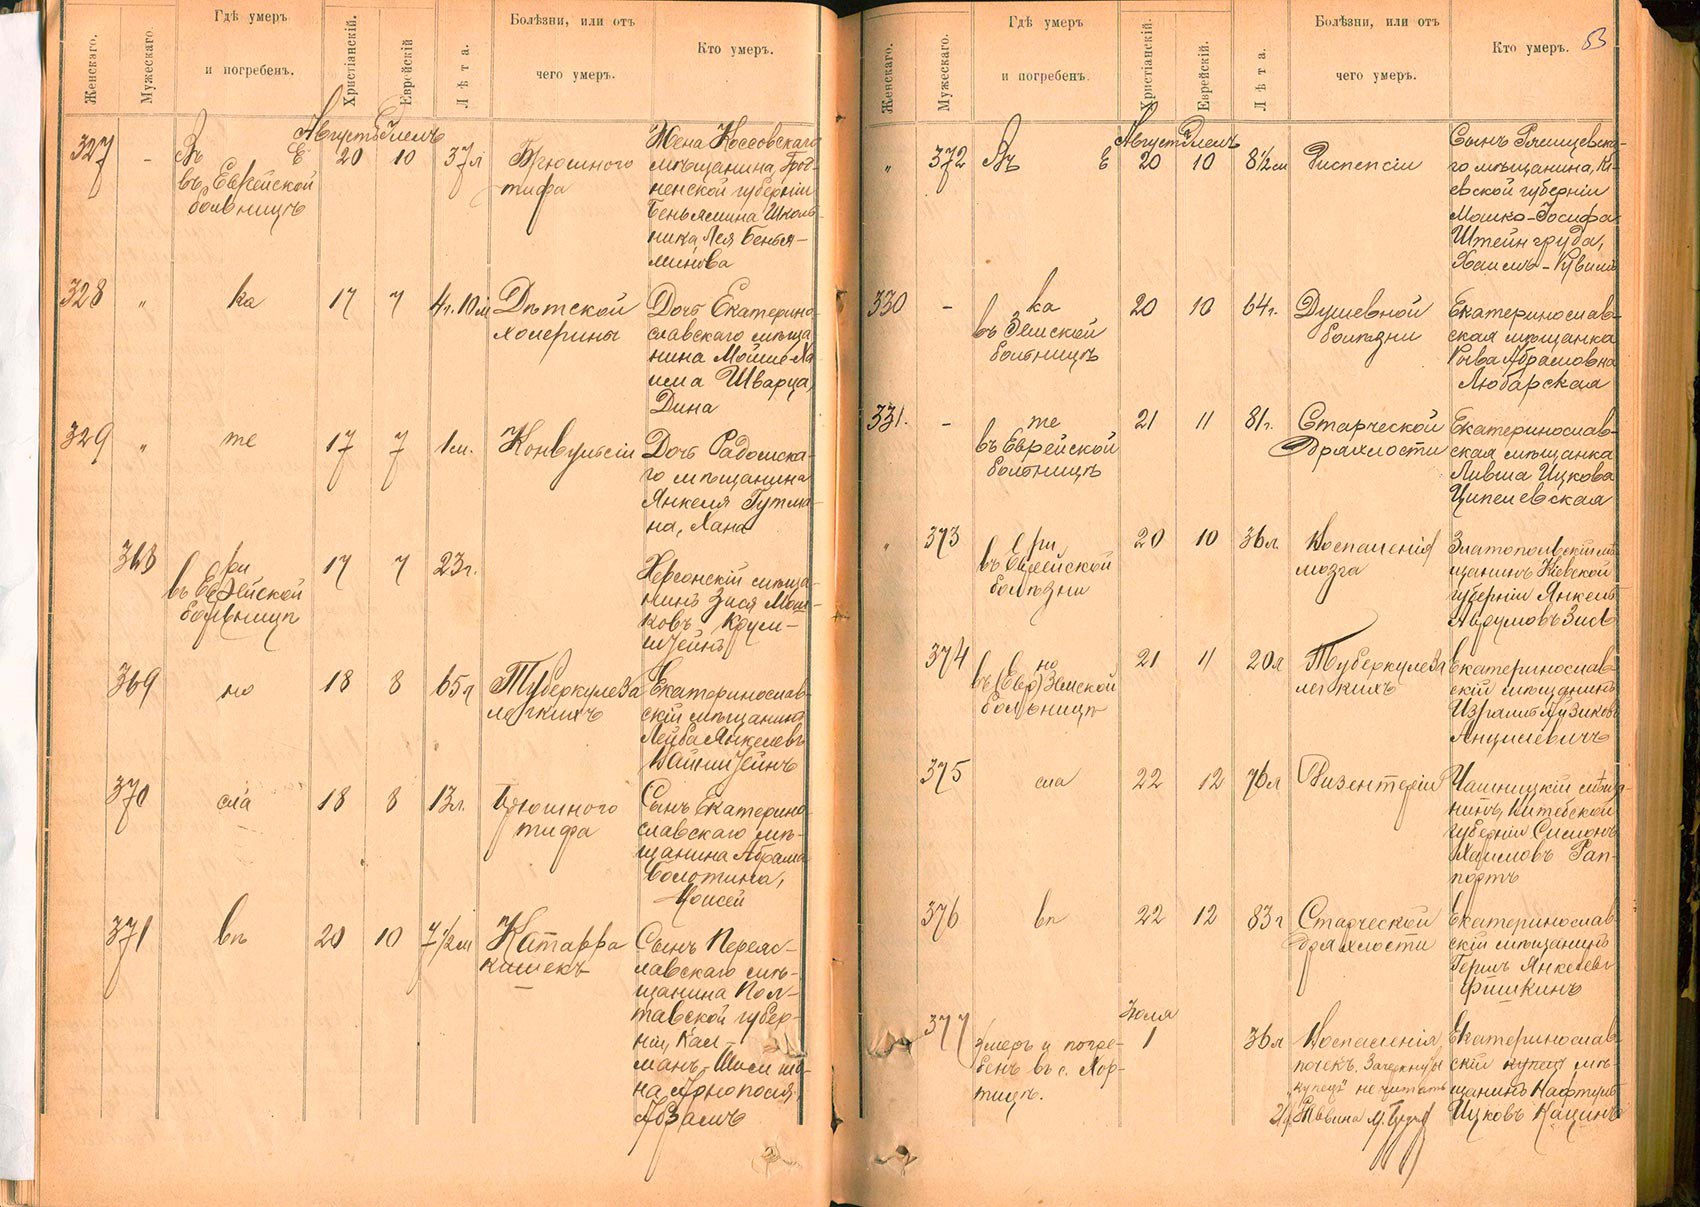 Женскаго.
Мужескаго.
Гдѣ умеръ
и погребенъ.
Христіанскій.
Еврейскій
Лѣта.
Болѣзни, или отъ
чего умеръ.
Кто умеръ.
Августъ Элемъ
327
-
Въ Е
въ Еврейской
больницѣ
20
10
37л
Брюшного
тифа
Жена Коссовскаго
мѣщанина, Грод-
ненской губерніи
Беньямина Школь-
ника, Лея Бенья-
минова
328
"
ка
17
7
4г.10м
Дѣтской
холерины
Дочь Екатерино-
славскаго мѣща
нина Мойше-Ха
има Шварца,
Дина
329
"
те
17
7
1м.
Конвульсіи
Дочь Радомска-
го мѣщанина
Янкеля Гутма-
на, Хана
368
ри
въ Еврейской
больницѣ
17
7
23г.
Херсонскій мѣща-
нинъ Зися Мош-
ковъ Крум-
штейнъ
369
но
18
8
65л
Туберкулеза
легкихъ
Екатеринослав-
скій мѣщанинъ
Лейба Янкелевъ
Вайнштейнъ
370
сла
18
8
13л.
Брюшного
тифа
Сынъ Екатерино
славскаго мѣ-
щанина Абрама
Болотина,
Моисей
371
въ
20
10
7 1/2м
Катарра
кишекъ
Сынъ Переяс-
лавскаго мѣ-
щанина Пол-
тавской губер-
ніи, Кал-
манъ-Шлиома
на Арнополя,
Абрамъ
53
Женскаго.
Мужескаго.
Гдѣ умеръ
и погребенъ.
Христіанскій.
Еврейскій.
Лѣта.
Болѣзни, или отъ
чего умеръ.
Кто умеръ.
Августъ Элемъ
"
372
Въ Е
20
10
8 1/2м
Диспепсіи
Сынъ Ржищевска-
го мѣщанина, Кі-
евской губерніи
Мошко-Іосифа
Штейнгруда,
Хаимъ-Рувимъ
330
-
ка
въ Земской
больницѣ
20
10
64г.
Душевной
болѣзни
Екатеринослав-
ская мѣщанка
Рива Абрамовна
Любарская
331.
-
те
въ Еврейской
больницѣ
21
11
81г.
Старческой
дряхлости
Екатеринослав-
ская мѣщанка
Ливша Ицкова
Ципелевская
"
373
ри
въ Еврейской
болѣзни
20
10
36л.
Воспаленія
мозга
Златопольскій мѣ
щанинъ Кіевской
губерніи Янкель
Аврумовъ Зисъ
374
но
въ (Евр) Земской
больницѣ
21
11
20л
Туберкулеза
легкихъ
Екатеринослав
скій мѣщанинъ
Израиль Айзиковъ
Анцилевичъ
375
сла
22
12
76л
Дизентеріи
Чашницкій мѣща-
нинъ, Витебской
губерніи Симонъ
Хаимовъ Рап-
портъ
376
въ
22
12
83г
Старческой
дряхлости
Екатеринослав
скій мѣщанинъ
Гершъ Янкелевъ
Фишкинъ
Іюля
377
Умеръ и погре-
бенъ въ с. Хор-
тицѣ.
1
36л
Воспаленія
почекъ. Зачеркнутое
"купецъ" не читать
Екатеринослав
скій купецъ мѣ-
щанинъ Нафтулъ
Ицковъ Кацинъ